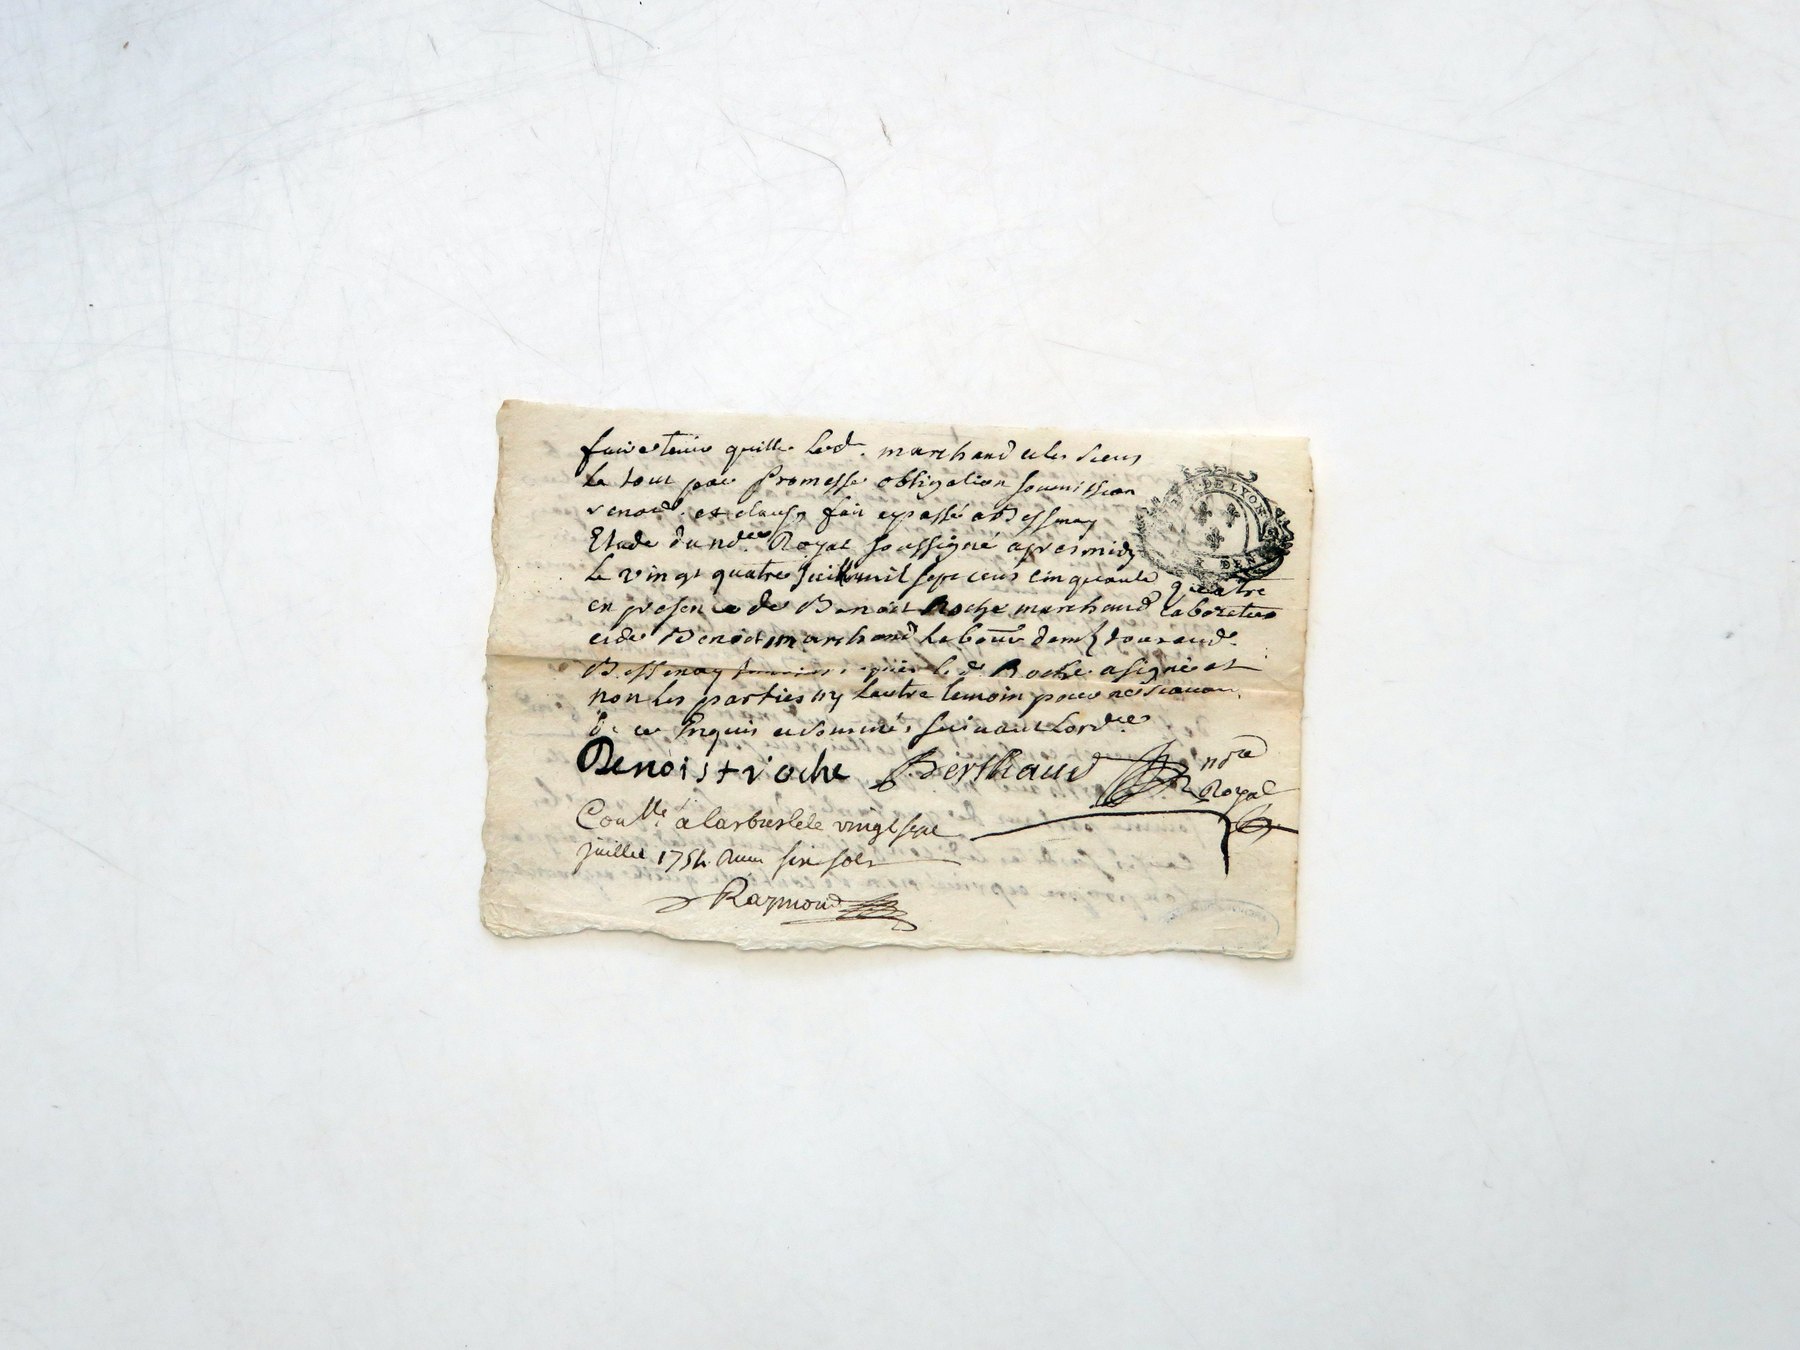 faire tenir quitte led. marchand et les siens
Le tout par Promesse obligation soumission
renon.. et clauses fait et passé a Bessenay
Etude du nd.re Royal soussigné apres midy
Le vingt quatre Juillet mil sept cens cinquante quatre
en presence de Benoist Roche marchand
et de Benoist marchand Labour. dem.t
Bessenay led. Roche a signé et
non les parties ny l'autre temoin pour ne sçavoir
de ce Enquis et sommés suivant Lord.ce
Benoist roche Berthaud nd.re
Royal
Con.lle à Larbresle le vingt sept
juillet 1754. Reçu six sols
Raymond
DE LYON
DEN